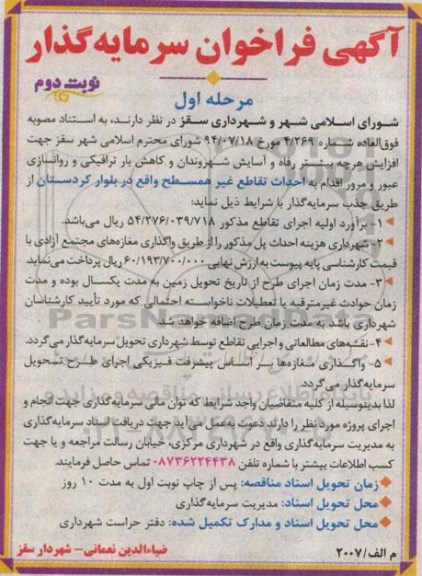 آگهی فراخوان سرمایه‌گذار
نوبت دوم
مرحله اول
شورای اسلامی شهر و شهرداری سقز در نظر دارند، به استناد مصوبه
فوق‌العاده شماره ۴/۲۶۹ مورخ ۹۴/۰۷/۱۸ شورای محترم اسلامی شهر سقز جهت
افزایش هرچه بیشتر رفاه و آسایش شهروندان و کاهش بار ترافیکی و روانسازی
عبور و مرور اقدام به احداث تقاطع غیر همسطح واقع در بلوار کردستان از
طریق جذب سرمایه‌گذار با شرایط ذیل نماید:
۱- برآورد اولیه اجرای تقاطع مذکور ۵۴/۲۷۶/۰۳۹/۷۱۸ ریال می‌باشد.
۲- شهرداری هزینه احداث پل مذکور را از طریق واگذاری مغازه‌های مجتمع آزادی با
قیمت کارشناسی پایه پیوست به ارزش نهایی ۶۰/۱۹۳/۷۰۰/۰۰۰ ریال پرداخت می‌نماید.
۳- مدت زمان اجرای طرح از تاریخ تحویل زمین به مدت یکسال بوده و مدت
زمان حوادث غیرمترقبه یا تعطیلات ناخواسته احتمالی که مورد تأیید کارشناسان
شهرداری باشد به مدت زمان طرح اضافه خواهد شد.
۴- نقشه‌های مطالعاتی و اجرایی تقاطع توسط شهرداری تحویل سرمایه‌گذار می‌گردد.
۵- واگذاری مغازه‌ها بر اساس پیشرفت فیزیکی اجرای طرح تحویل
سرمایه‌گذار می‌گردد.
لذا بدینوسیله از کلیه متقاضیان واجد شرایط که توان مالی سرمایه‌گذاری جهت انجام و
اجرای پروژه مورد نظر را دارند دعوت به‌عمل می‌آید جهت دریافت اسناد سرمایه‌گذاری
به مدیریت سرمایه‌گذاری واقع در شهرداری مرکزی، خیابان رسالت مراجعه و یا جهت
کسب اطلاعات بیشتر با شماره تلفن ۰۸۷۳۶۲۲۴۴۳۸ تماس حاصل فرمایند.
زمان تحویل اسناد مناقصه: پس از چاپ نوبت اول به مدت ۱۰ روز
محل تحویل اسناد: مدیریت سرمایه‌گذاری
محل تحویل اسناد و مدارک تکمیل شده: دفتر حراست شهرداری
م الف/۲۰۰۷
ضیاءالدین نعمانی- شهردار سقز
ParsNamadData